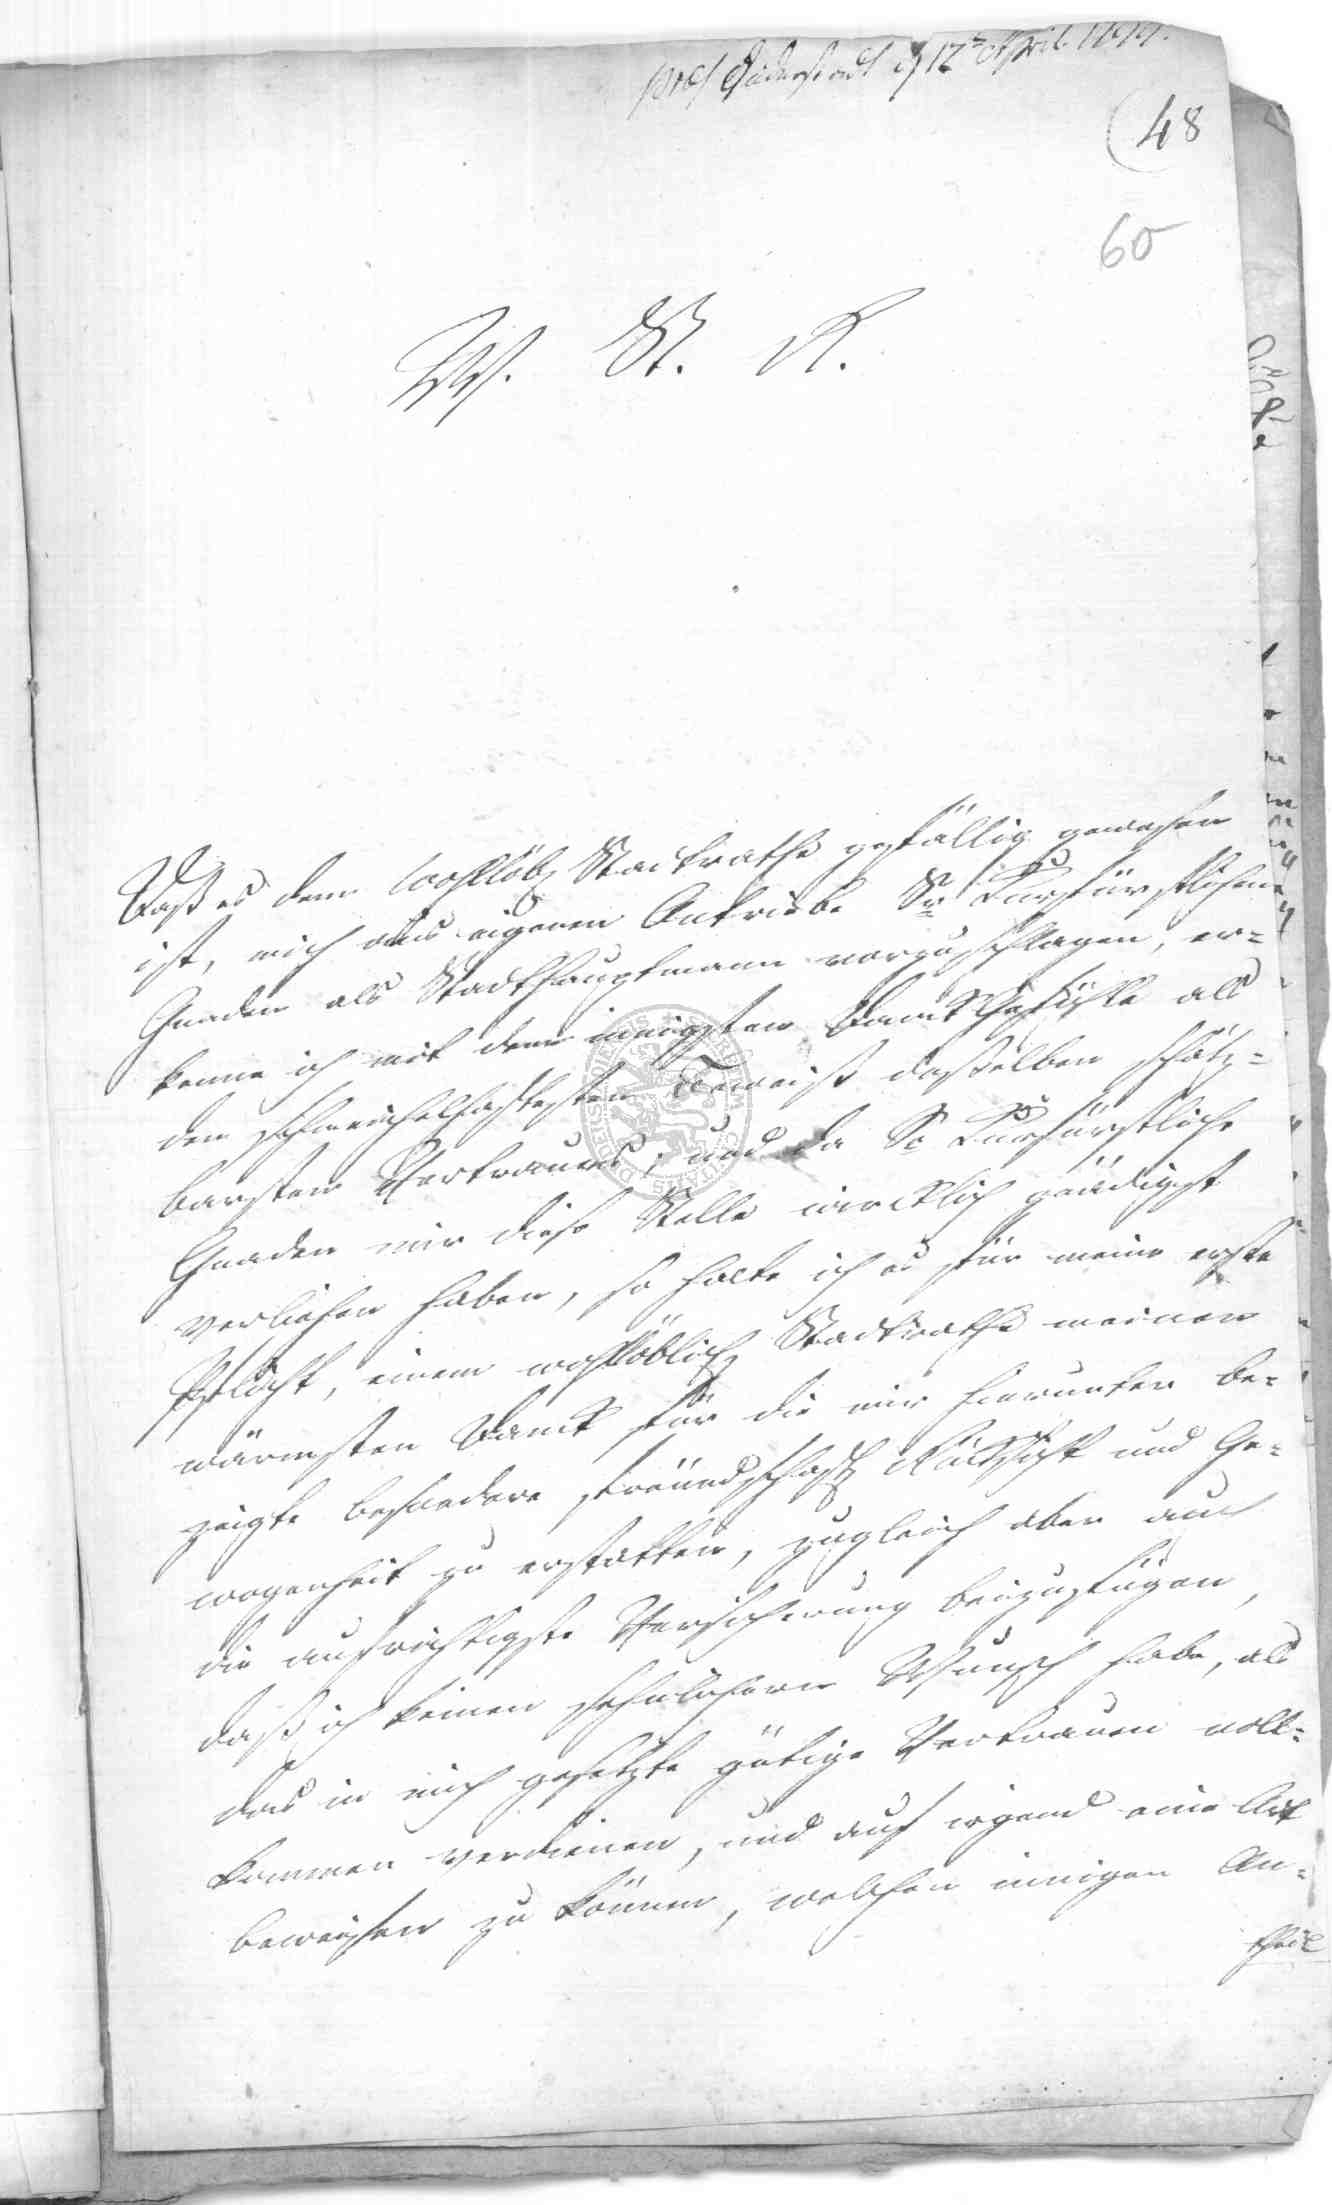 Duderstadt 12 April
48
60
W. St. R.
Daß es dem Wohllöbl Stadtrathe gefällig gewesen
ist, mich aus eigenem Antriebe Sr Kurfürstlichen
Gnaden als Stadthauptmann vorzuschlagen, er=
kenne ich mit dem innigsten Danckgefühle als
den schmeichelhaftesten Beweiß desselben schätz=
barsten Vertrauens; und da Se Kurfürstliche
Gnaden mir diese Stelle wircklich gnädigst
verliehen haben, so halte ich es für meine erste
Pflicht, einem wohllöblich Stadtrathe meinen
wärmsten Danck für die mir hierunter be=
zeigte besondere freundschaftl Rücksicht und Ge=
wogenheit zu erstatten, zugleich aber auch
die aufrichtigste Versicherung beizufügen,
daß ich keinen sehnlichern Wunsch habe, als
das in mich gesetzte gütige Vertrauen voll=
kommen verdienen, und auf irgend eine Art
beweisen zu können, welchen innigen An=
theil